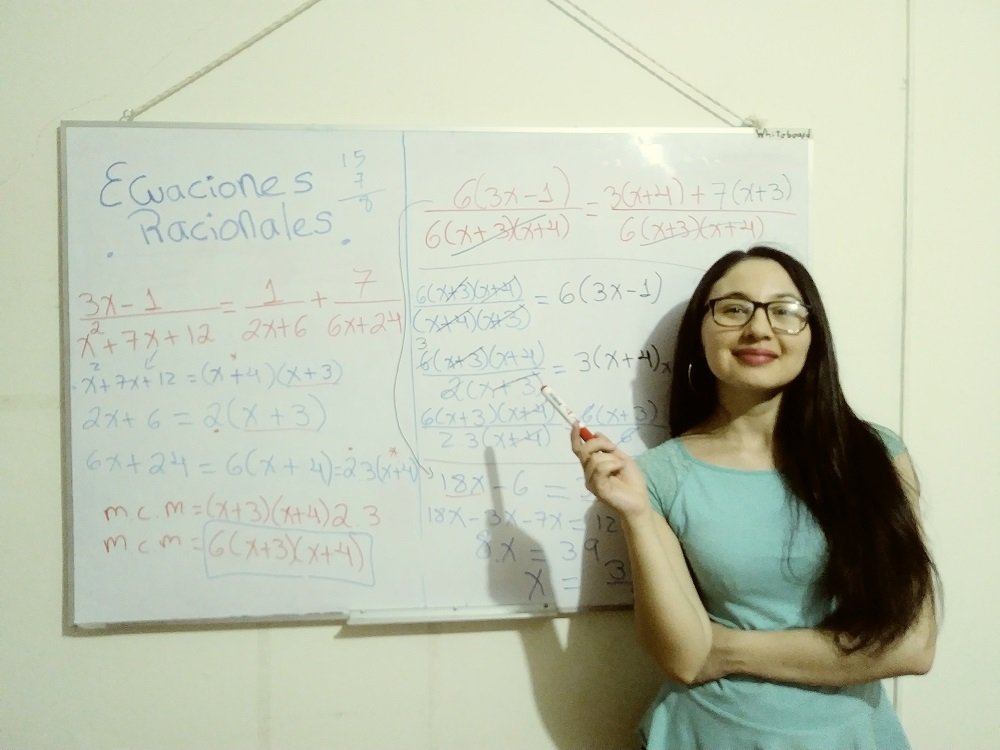 Whiteboard
Ecuaciones
Racionales.
15
7
8
3x-1 / x²+7x+12 = 1 / 2x+6 + 7 / 6x+24
x²+7x+12 = (x+4)(x+3)
2x+6 = 2(x+3)
6x+24 = 6(x+4)=2.3(x+4)
m.c.m = (x+3)(x+4)2.3
m.c.m = 6(x+3)(x+4)
6(3x-1) / 6(x+3)(x+4) = 3(x+4)+7(x+3) / 6(x+3)(x+4)
6(x+3)(x+4) / (x+4)(x+3) = 6(3x-1)
3
6(x+3)(x+4) / 2(x+3) = 3(x+4)x
6(x+3)(x+4) / 2 3(x+4) 6(x+3) / 6
18x-6 =
18x-3x-7x = 12
8x = 39
x = 3